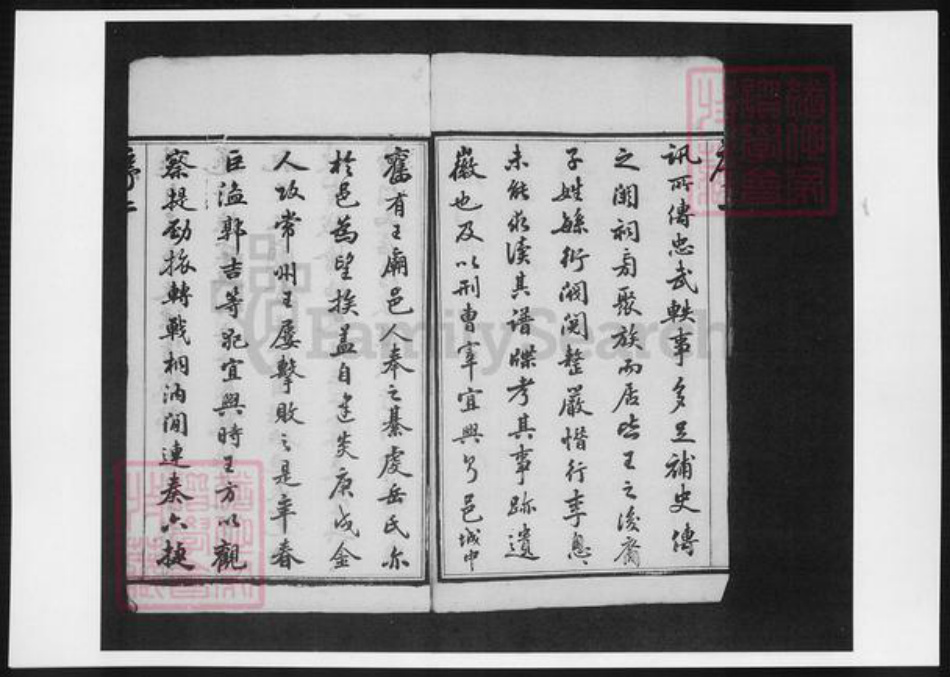 訊所傳忠武軼事多足補史傳
之闕祠旁聚族而居皆王之後裔
子姓緜衍閥閱整嚴惜行李怱
未能求讀其譜牒考其事跡遺
徽也及以刑曹宰宜興
邑城中
舊有王廟邑人奉之綦虔岳氏亦
於邑為望族蓋自建炎庚戌金
人攻常州王屢擊敗之是年春
巨盜郭吉等犯宜興時王方以觀
察提勁旅轉戰桐汭間連奏六捷
序二
FamilySearch